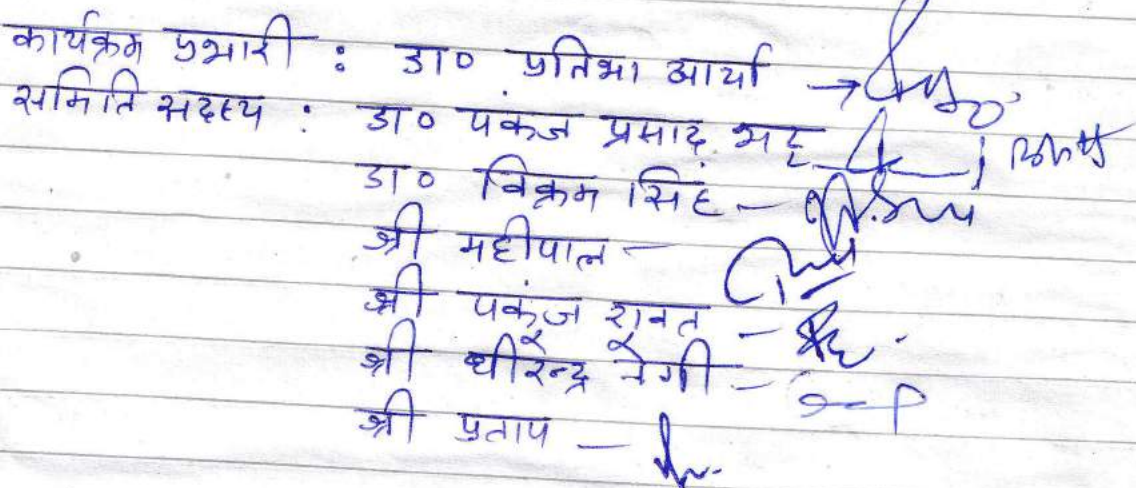 कार्यक्रम प्रभारी : डा० प्रतिभा आर्या →
समिति सदस्य : डा० पंकज प्रसाद भट्ट
डा० विक्रम सिंह -
श्री महीपाल -
श्री पकंज रावत -
श्री धीरेन्द्र नेगी -
श्री प्रताप -